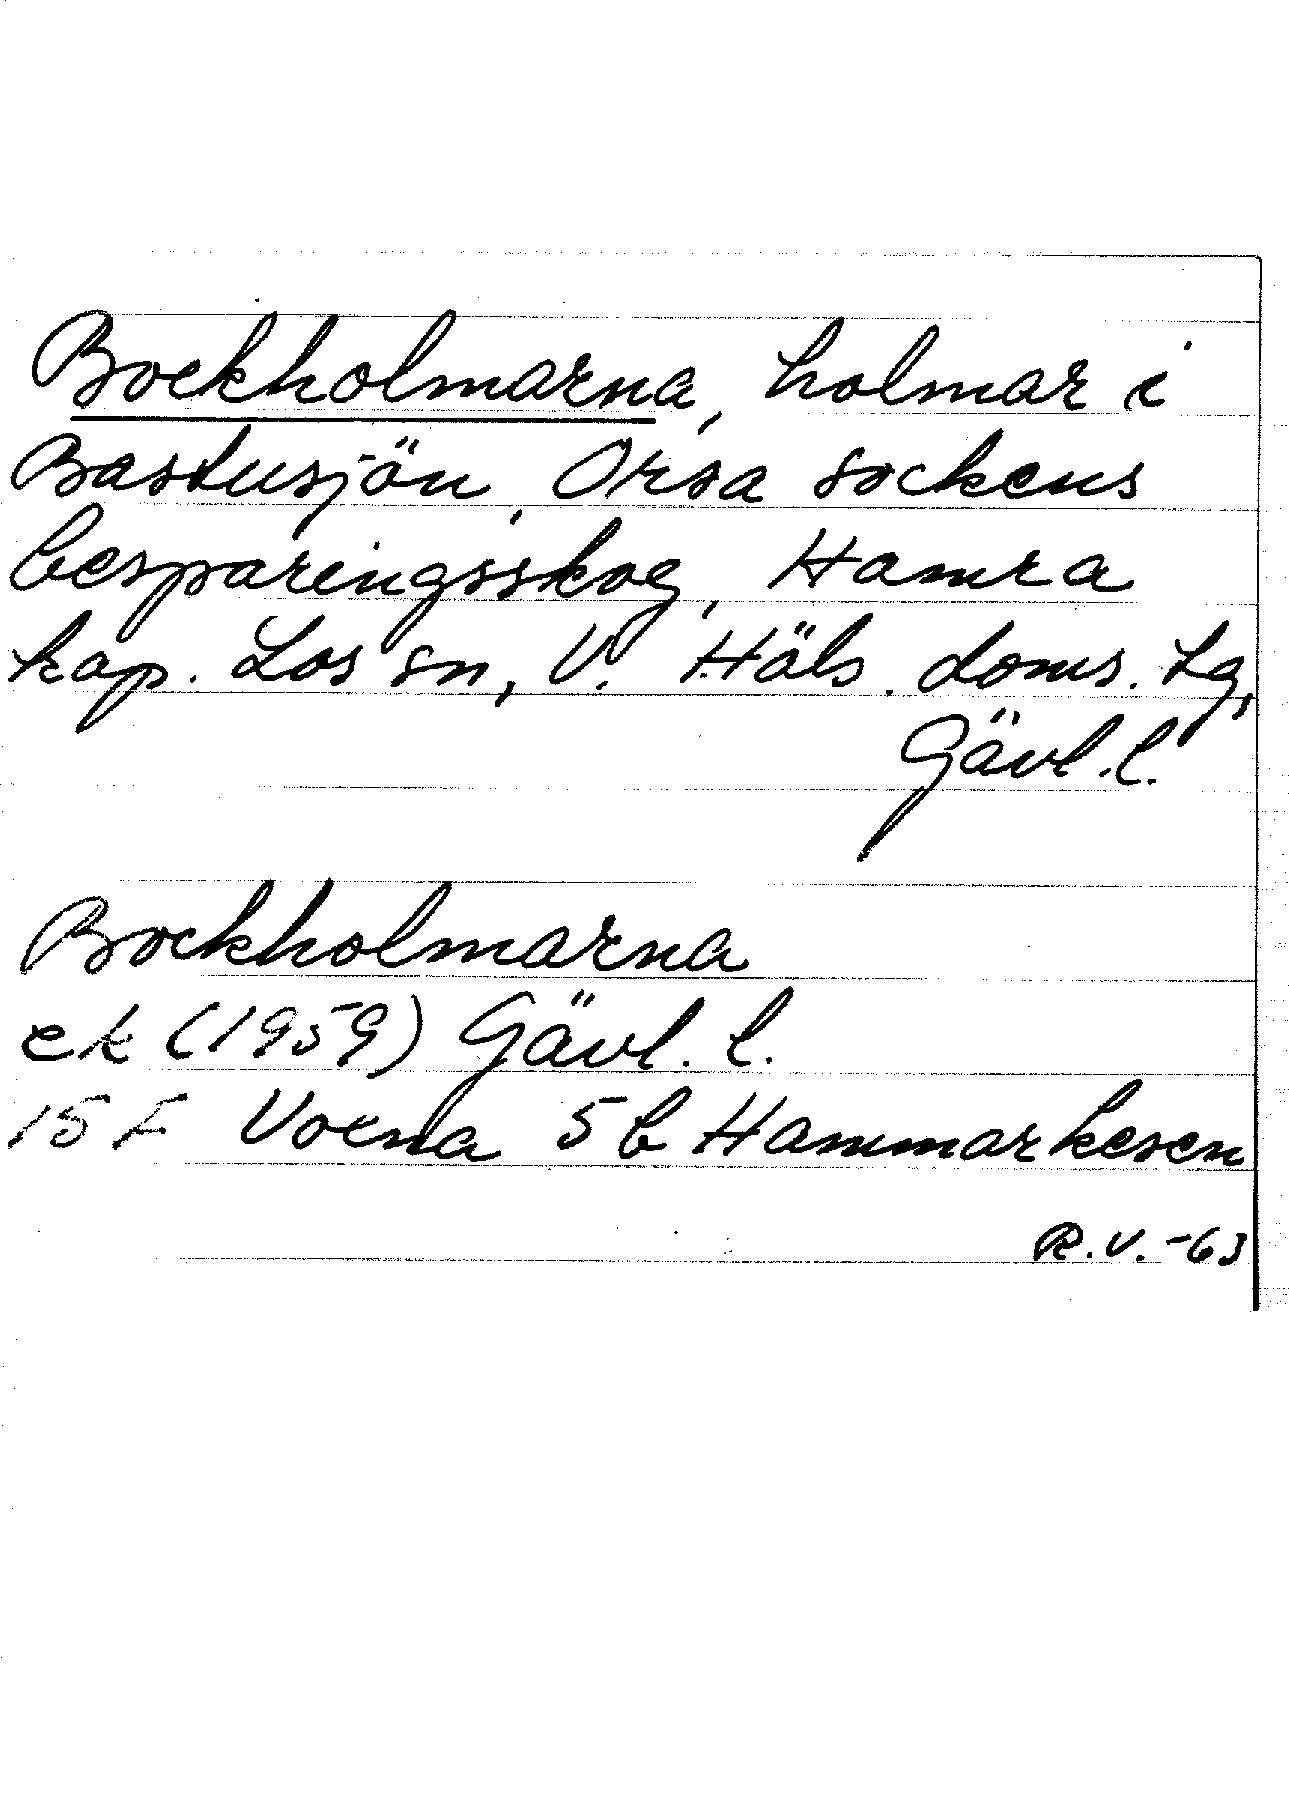 Bockholmarna, holmar i
Bastusjön, Orsa sockens
besparingsskog, Hamra
kap. Los sn, V. Häls. doms. tg,
Gävl. l.
Bockholmarna
ek (1959) Gävl. l.
15 F Voxna 5b Hammarkesen
R.V. -63